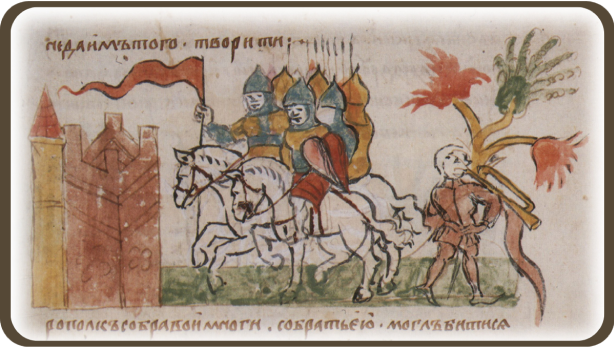 недаимътого · творити :
рополкъсобравоимноги . собратьею . моглъбитисѧ